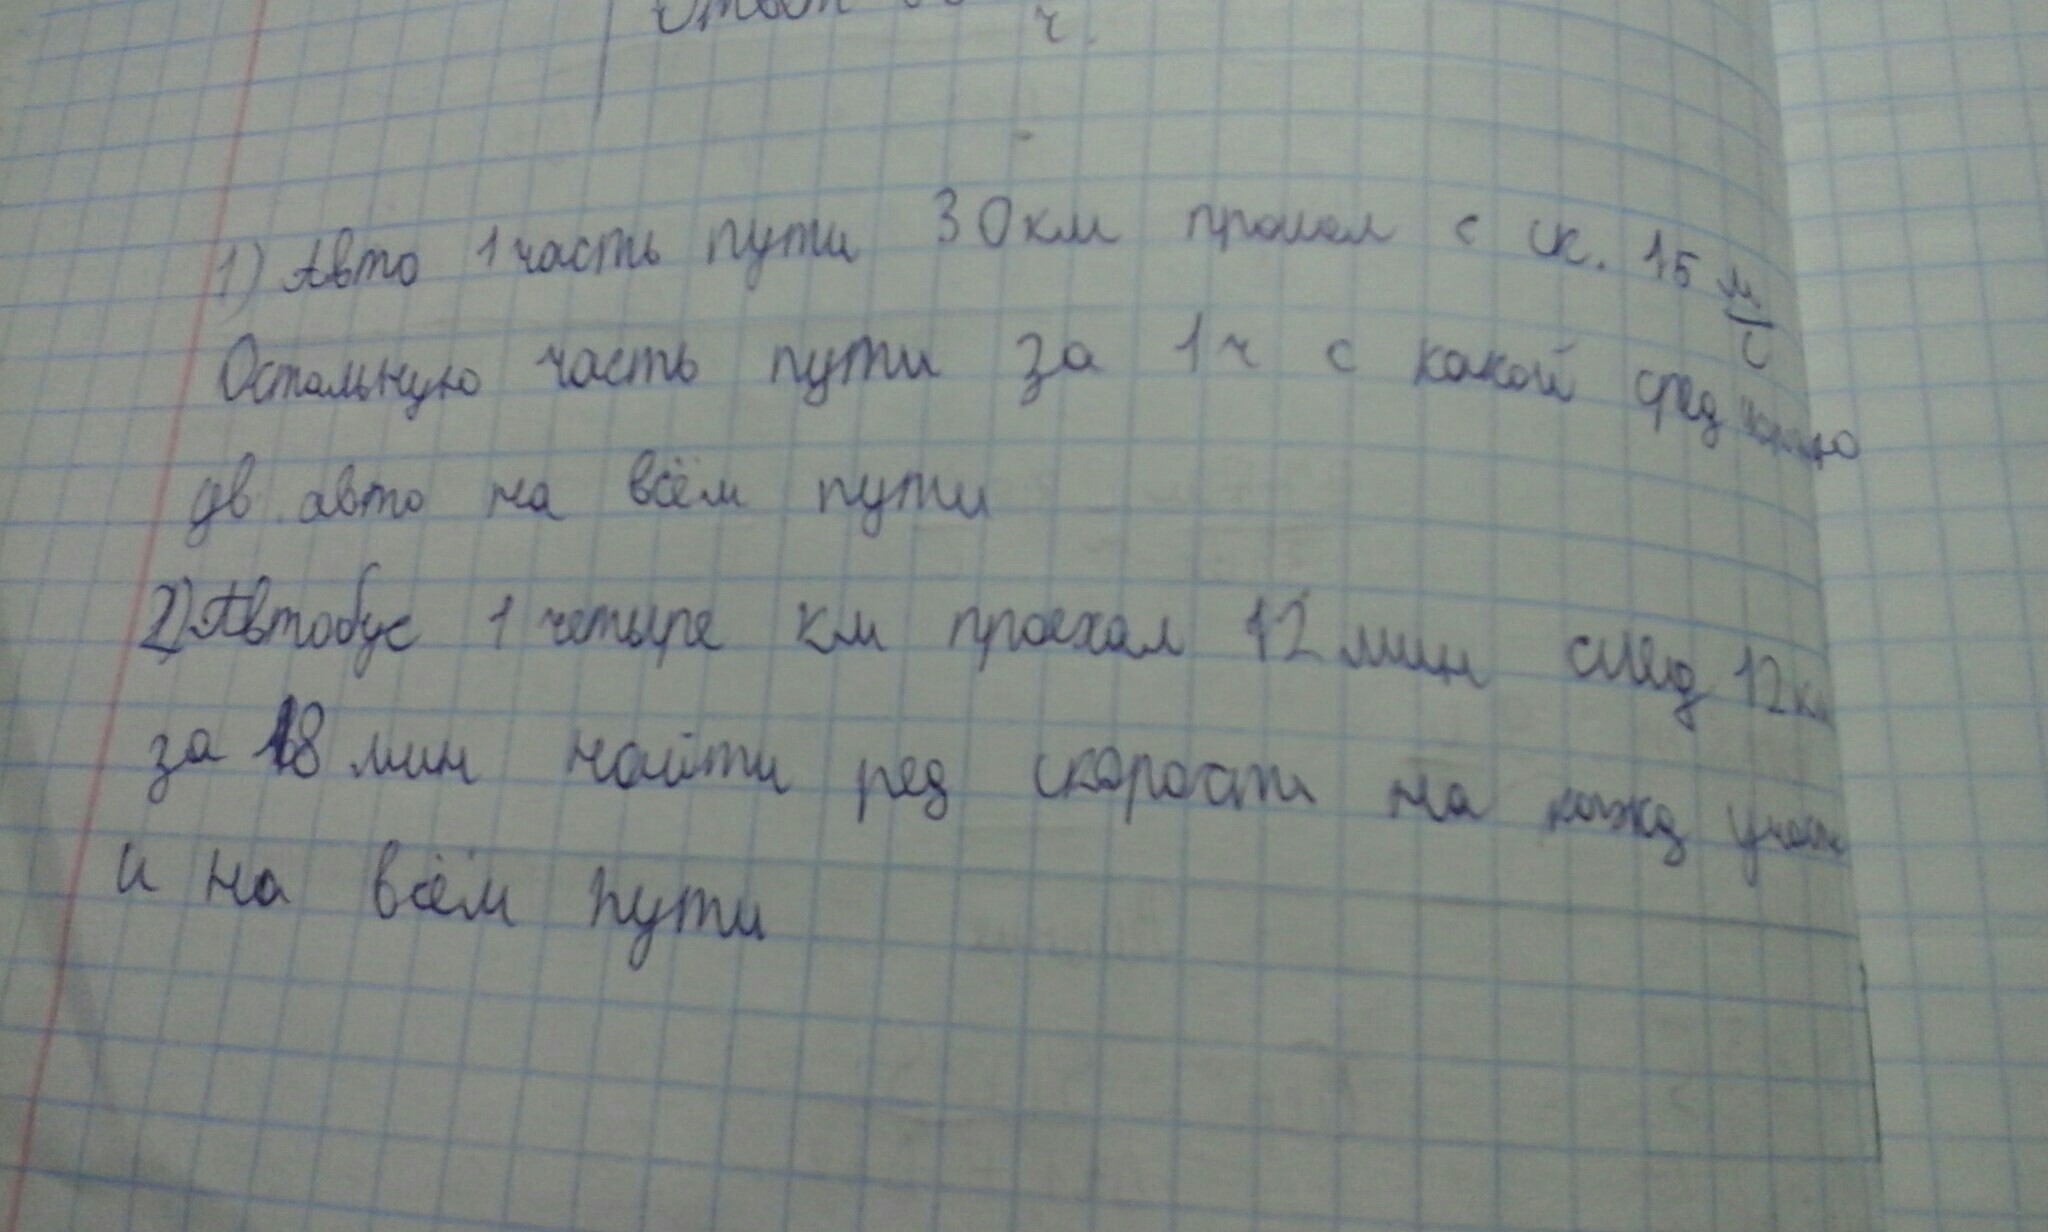 ч.
1) Авто 1 часть пути 30 км проехал с ск. 15 м/с
Остальную часть пути за 1 ч с какой сред
дв. авто на всём пути
2) Автобус 1 четыре км проехал 12 мин след 12 км
за 18 мин найти ред скорости на кажд участ
и на всём пути